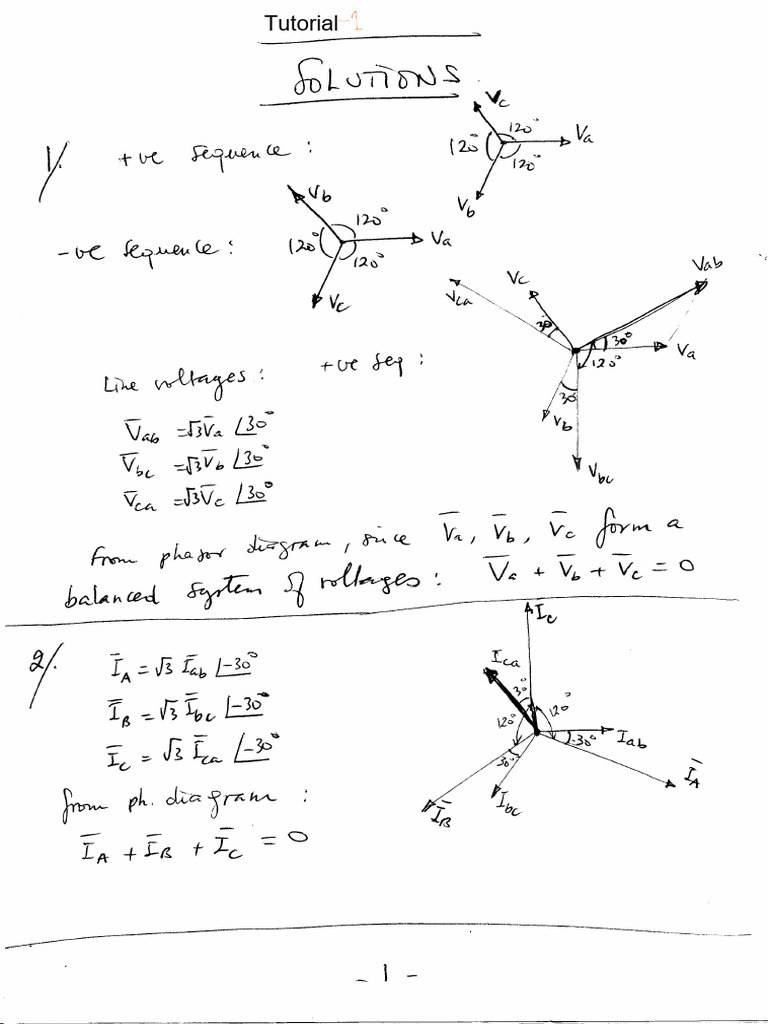 Tutorial -1
SOLUTIONS
1/. +ve sequence :
Vc
120° 120° Va
120°
Vb
Vb
120°
-ve sequence : 120° Va
120°
Vc
Vab
Vc
Vca
30°
30° Va
120°
30°
Vb
Vbc
Line voltages : +ve seq :
V̄ab = √3 V̄a ∠30°
V̄bc = √3 V̄b ∠30°
V̄ca = √3 V̄c ∠30°
From phasor diagram, since V̄a, V̄b, V̄c form a
balanced system of voltages : V̄a + V̄b + V̄c = 0
2/. ĪA = √3 Īab ∠-30°
ĪB = √3 Ībc ∠-30°
ĪC = √3 Īca ∠-30°
from ph. diagram :
ĪA + ĪB + ĪC = 0
Ic
Ica
30°
120° 120°
Iab
-30°
30°
ĪA
Ibc
ĪB
- 1 -